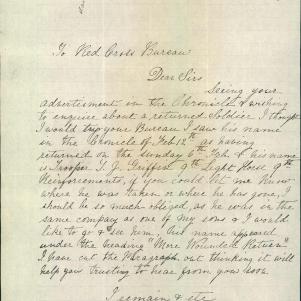 To Red Cross Bureau
Dear Sirs
Seeing your
advertisment in the Chronicle & wishing
to enquire about a returned Soldier I thought
I would try your Bureau I saw his name
in the Chronicle of Feb 12th as having
returned on the Sunday 6th Feb & his name
is Trooper T. J. Griffin 9th Light Horse 9th
Reinforcements, if you could let me know
where he was taken or where he has gone I
should be so much obliged, as he was in the
same company as one of my sons & I would
like to go & see him, his name appeared
under the heading "More Wounded Return"
I have cut the Paragraph out thinking it will
help you trusting to hear from you soon
I remain & etc